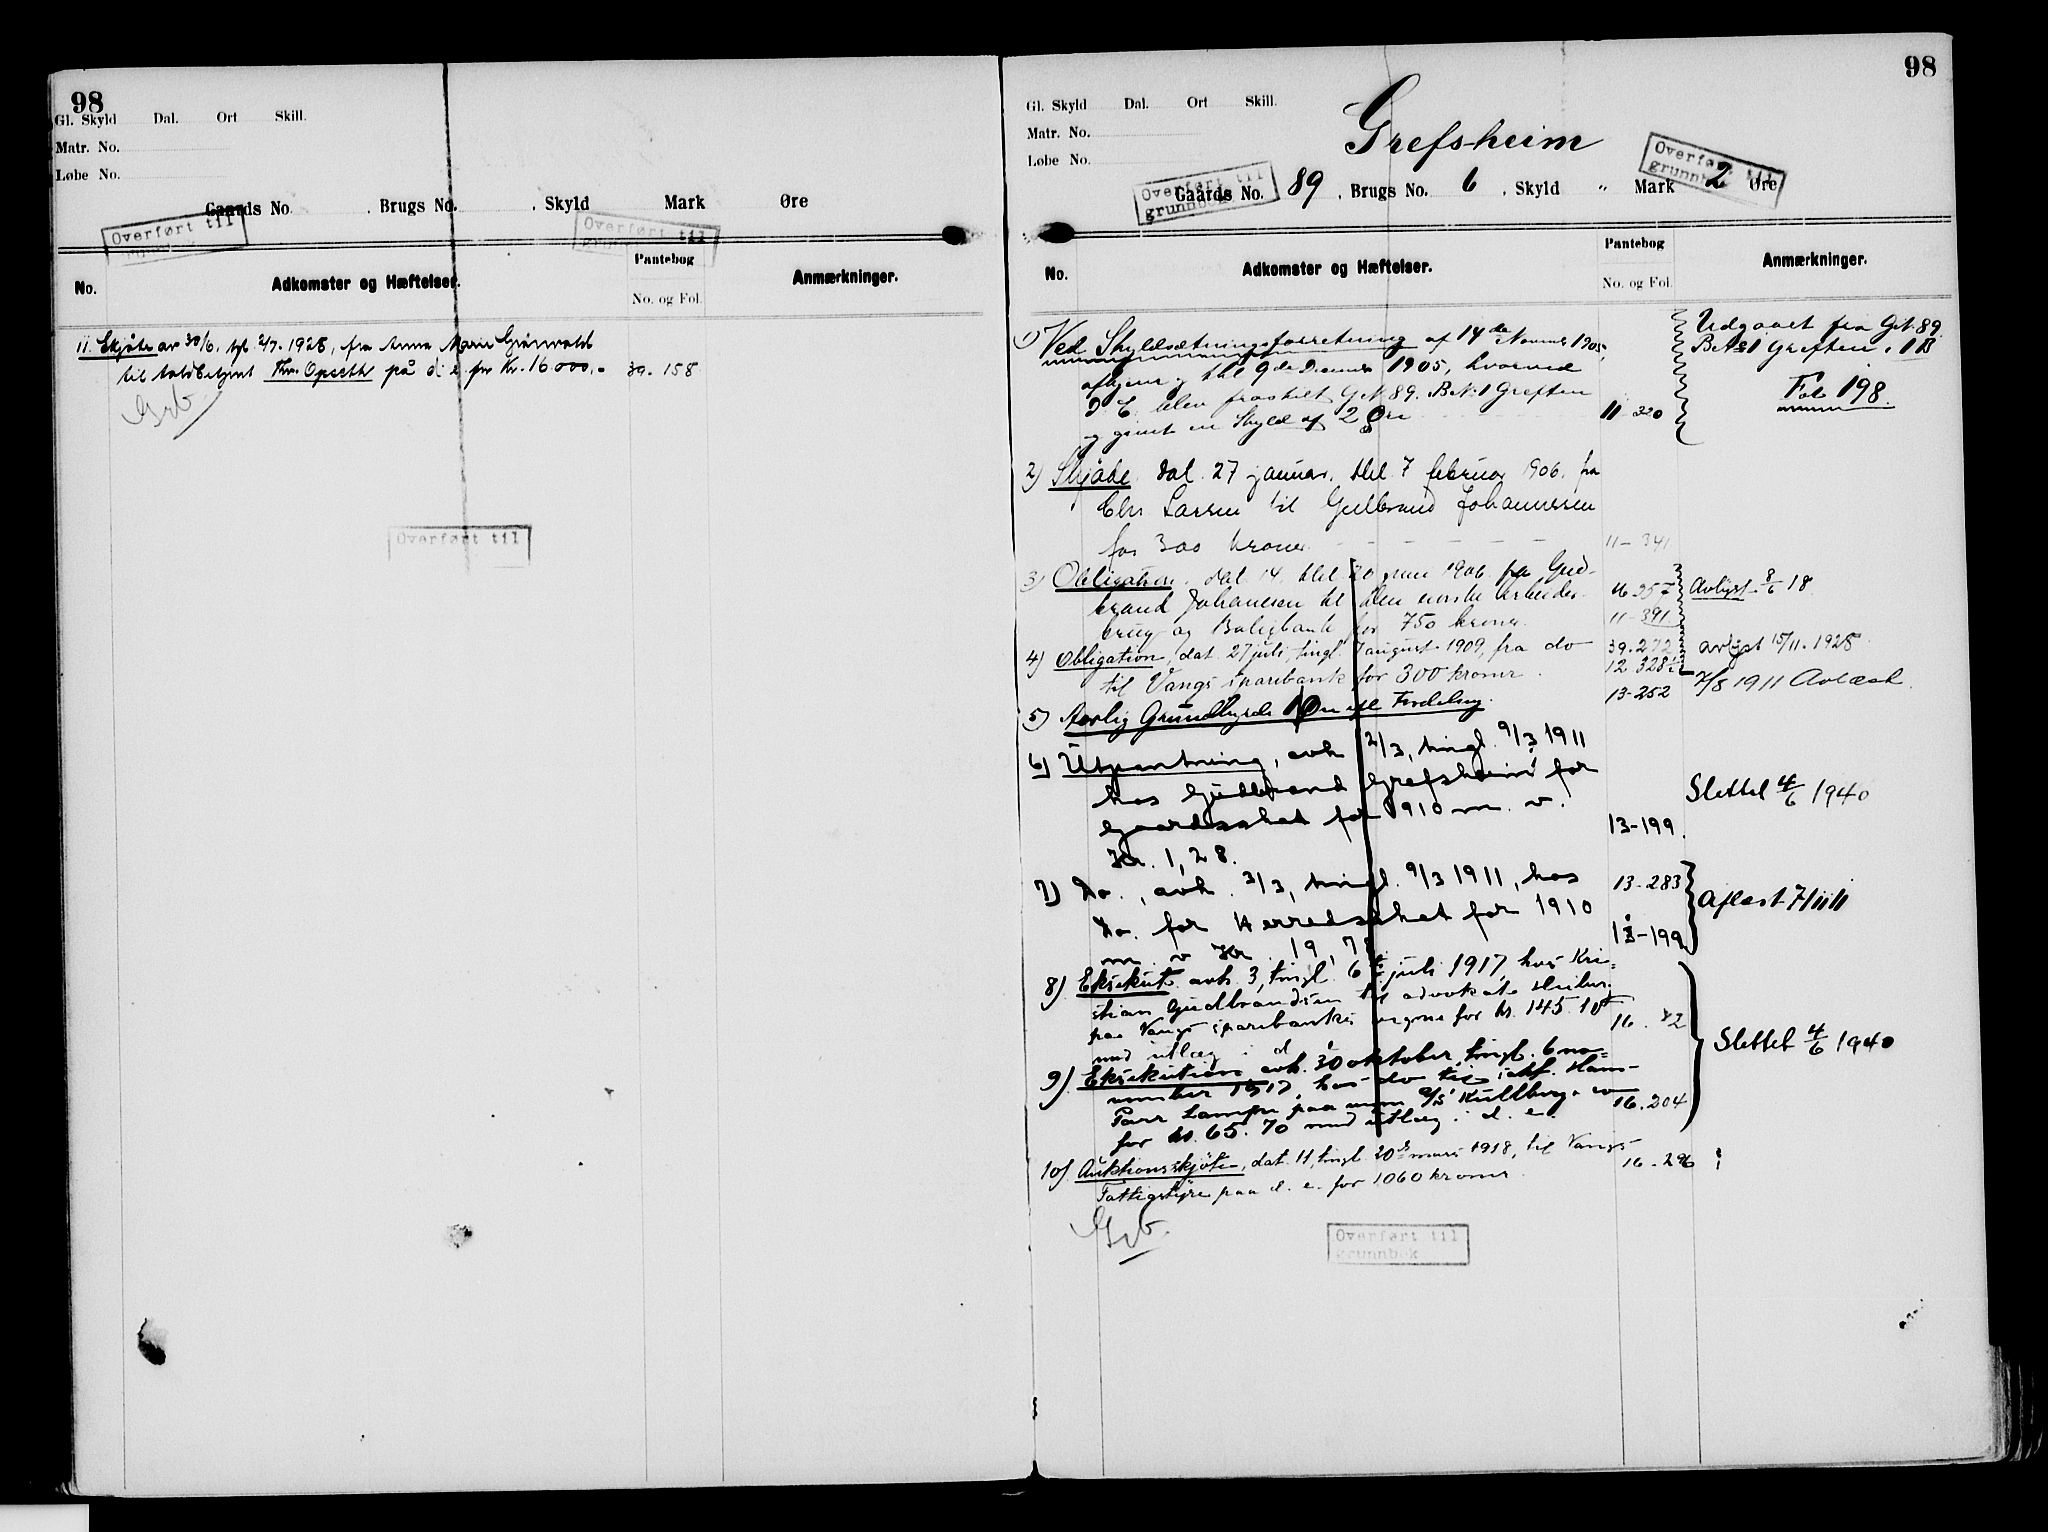 98
Gl. Skyld Dal. Ort Skill.
Matr. No.
Løbe No.
Gaards No. Brugs No. Skyld Mark Øre
Overført til
Overført til
No. Adkomster og Hæftelser. Pantebog Anmærkninger.
No. og Fol.
11. Skjøte av 30/6, tgl. 2/7. 1928, fra Anna Marie
til på d. e. for Kr. 16000,- 39. 158
Overført til
98
Gl. Skyld Dal. Ort Skill.
Matr. No.
Løbe No.
Grefsheim
Overført til
grunnbok
Overført til
grunnbok
Gaards No. 89, Brugs No. 6, Skyld " Mark 2 Øre
No. Adkomster og Hæftelser. Pantebog Anmærkninger.
No. og Fol.
1) Ved Skyldsætningsforretning af 14de November 1905, Udgaaet fra G.N. 89.
afhjemlet thl 9de December 1905, hvorved B.N. 1
D. E. blev fraskilt G.N. 89. B.N. 1 Fol 198.
og givet en Skyld af 2 Øre 11 - 320
2) Skjøde, dat. 27 januar, thl. 7 februar 1906. fra
Chr. Larsen til Gulbrand Johannessen
for 300 kroner. 11 - 341
3) Obligation. dat. 14, thl. 20 juni 1906. fra Gud-
brand Johanesen til Den norske Arbeider- Avlyst 8/6 18
brug og Boligbank for 750 kroner. 11 - 391
4) Obligation, dat. 27 juli, tingl. 7 august 1909, fra do 39. 272 avlyst 15/11. 1928
til Vangs sparebank for 300 kroner. 7/8 1911 Avlæst
13-252
5) Aarlig Grundbyrde 1 Øre
6) Utpantning, avh. 2/3, tingl. 9/3 1911
hos Gudbrand Grefsheim for Slettet 4/6 1940
Gaardsskat for 1910 m. v. 13-199.
Kr. 1,28.
7) Do., avh. 2/3, tingl. 9/3 1911, hos 13-283
Do. for Herredsskat for 1910 Aflæst
m. v. Kr. 19,7 13-199
8) Eksekut. avh. 3, tingl. 6te juli 1917, hos Kri-
stian Gudbrandsen til advokat
paa Vangs sparebanks vegne for kr. 145.10 16.
med utlæg i d. Slettet 4/6 1940
9) Eksekution avh. 30 oktober, tingl. 6 no-
vember 1917, hos do til
paa 16. 204
for kr. 65. 70 med utlæg i d. e.
10) Auktionsskjøte, dat. 11, tingl. 20de mars 1918, til Vangs 16 - 296
Fattigstyre paa d. e. for 1060 kroner.
Overført til
grunnbok